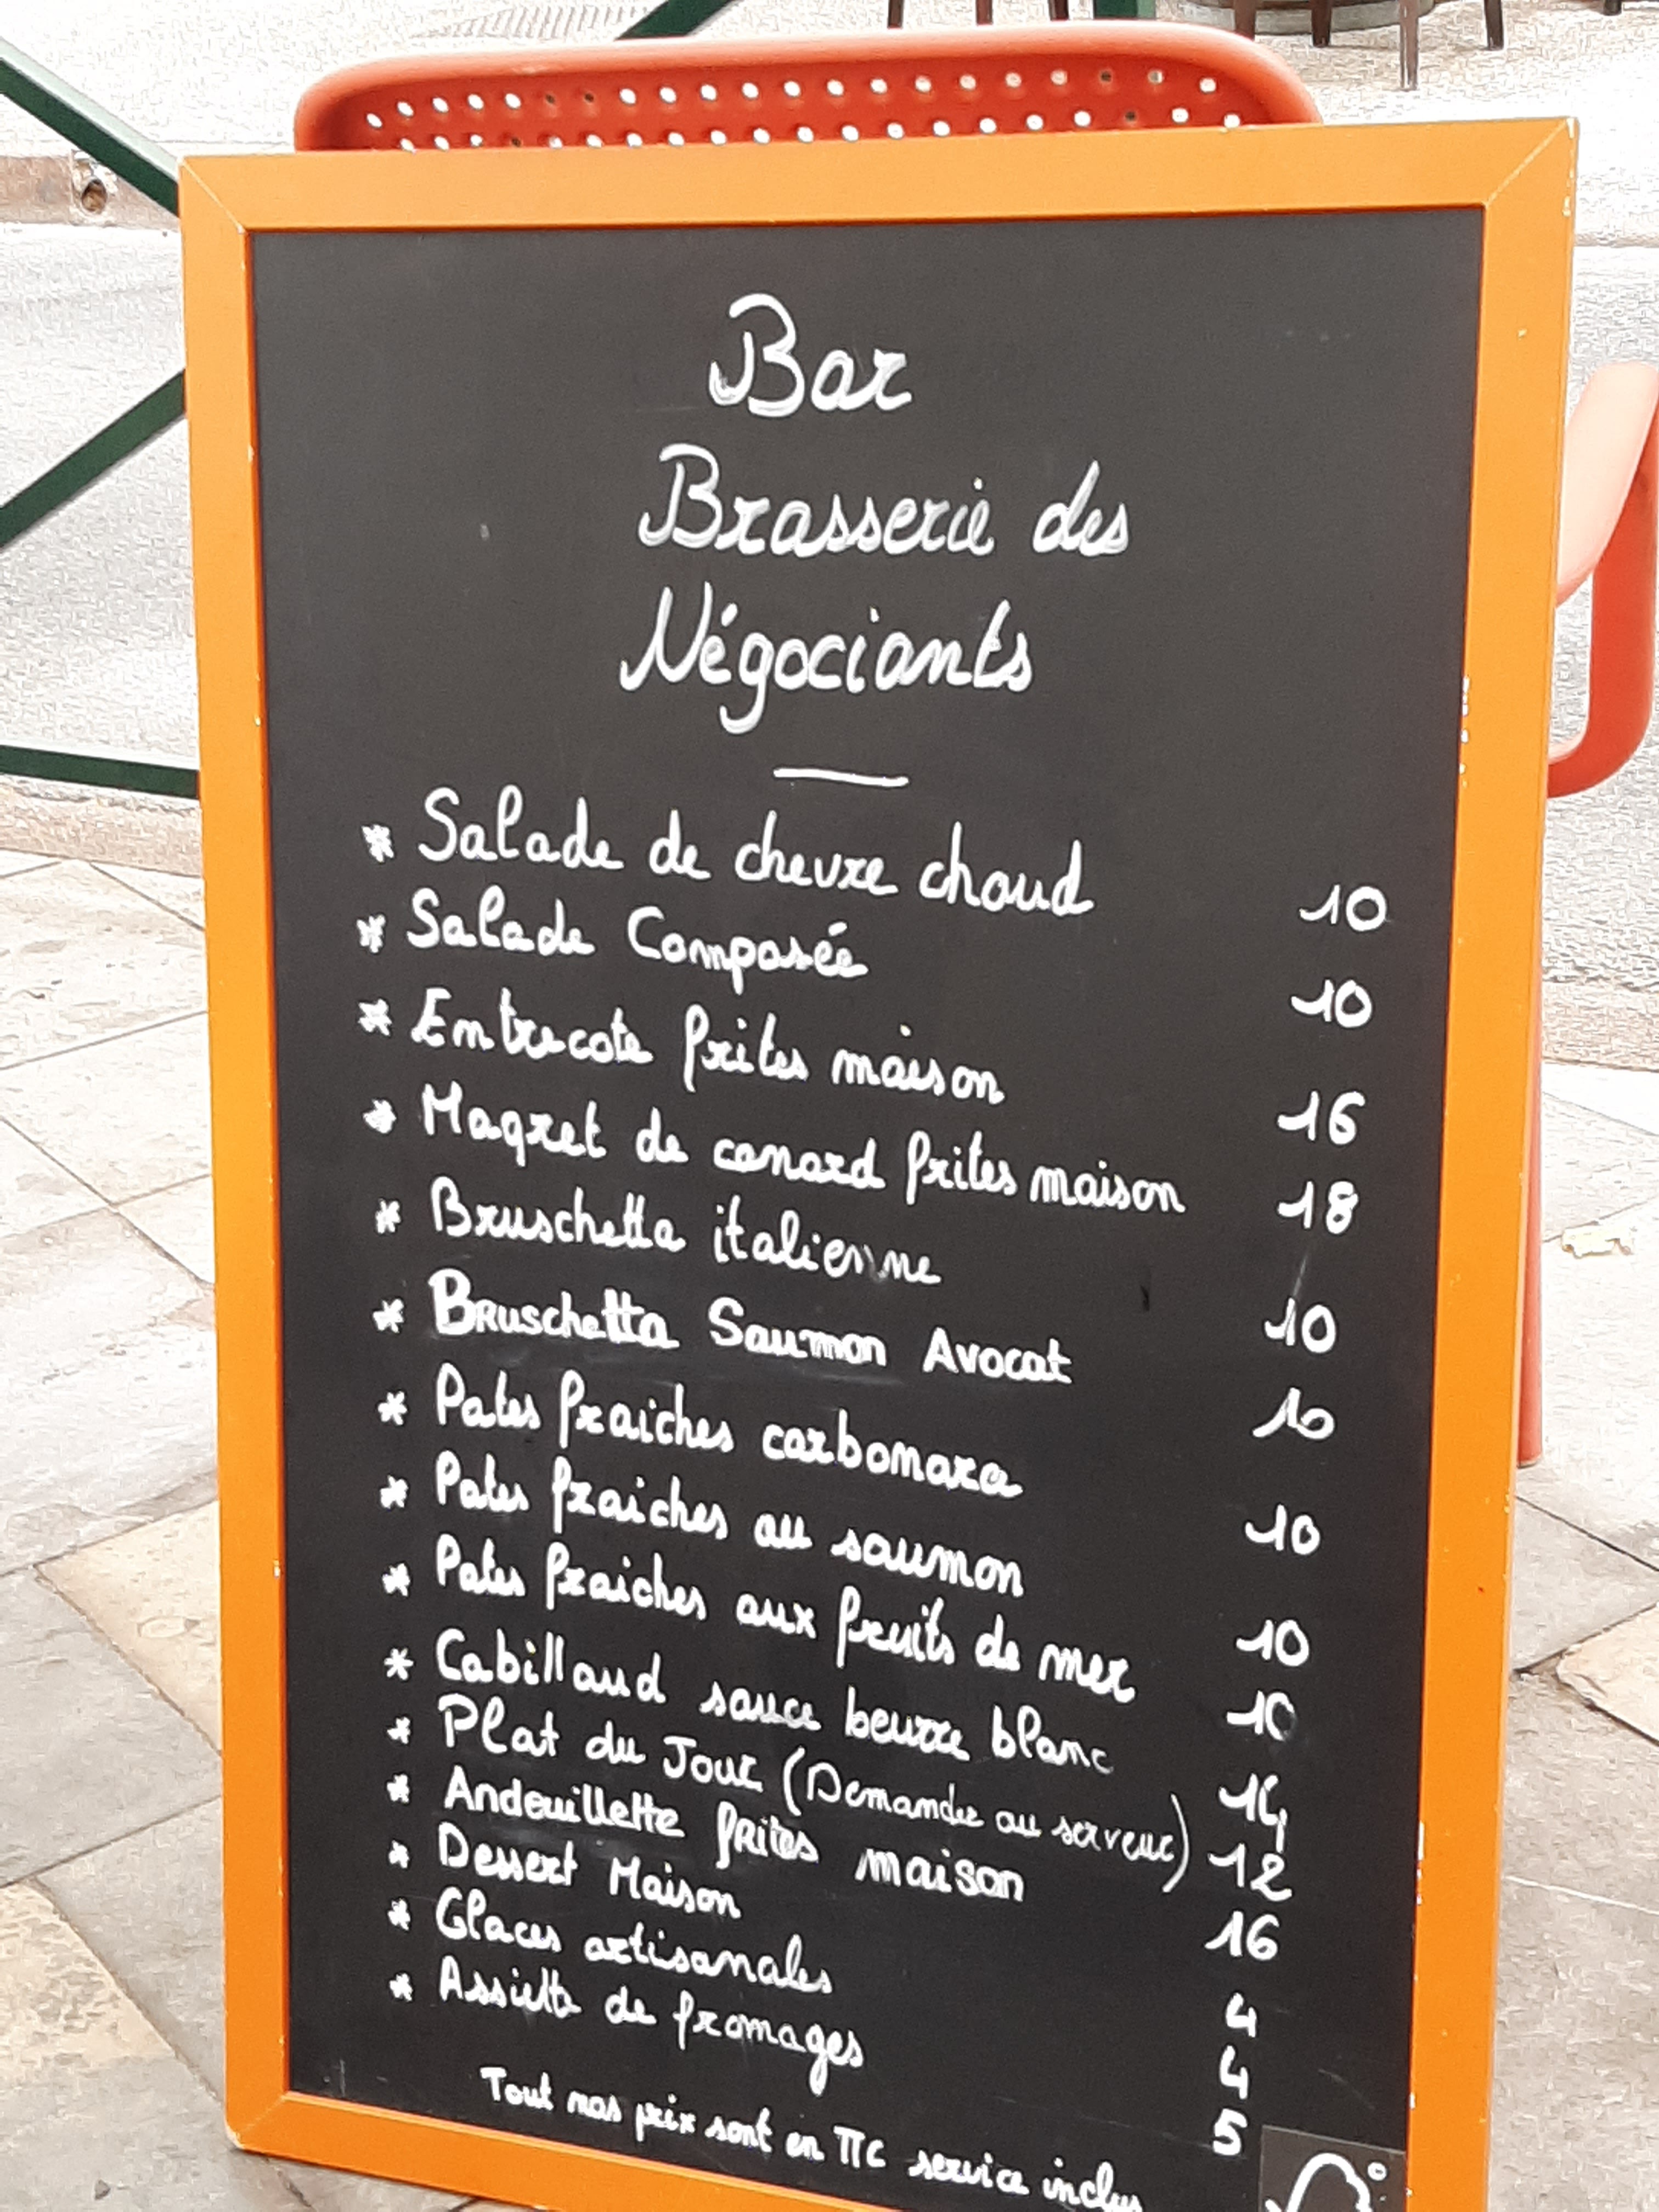 Bar
Brasserie des
Négociants
* Salade de chevre chaud 10
* Salade Composée 10
* Entrecote frites maison 16
* Magret de canard frites maison 18
* Bruschetta italienne 10
* Bruschetta Saumon Avocat 10
* Pates fraiches carbonara 10
* Pates fraiches au saumon 10
* Pates fraiches aux fruits de mer 10
* Cabillaud sauce beurre blanc 14
* Plat du Jour (Demander au serveur) 12
* Andouillette frites maison 16
* Dessert Maison 4
* Glaces artisanales 4
* Assiette de fromages 5
Tout nos prix sont en TTC service inclus